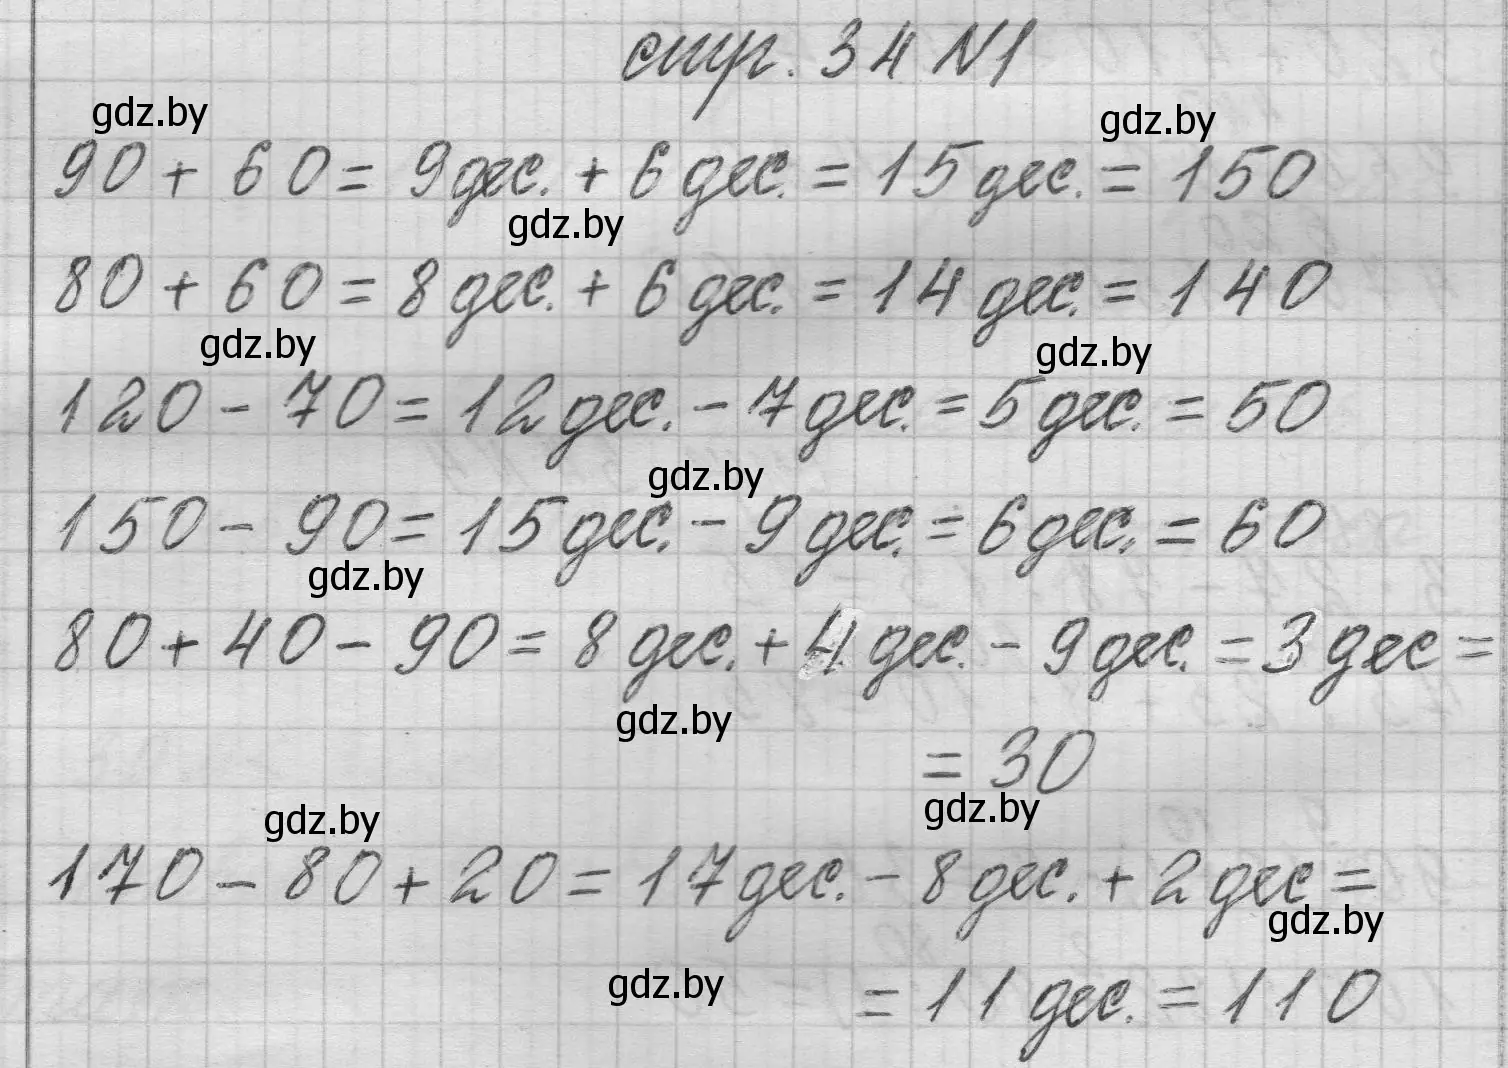 стр. 34 N1
gdz.by
gdz.by
90 + 60 = 9 дес. + 6 дес. = 15 дес. = 150
gdz.by
80 + 60 = 8 дес. + 6 дес. = 14 дес. = 140
gdz.by
gdz.by
120 - 70 = 12 дес. - 7 дес. = 5 дес. = 50
gdz.by
150 - 90 = 15 дес. - 9 дес. = 6 дес. = 60
gdz.by
80 + 40 - 90 = 8 дес. + 4 дес. - 9 дес. = 3 дес =
gdz.by
= 30
gdz.by
gdz.by
170 - 80 + 20 = 17 дес. - 8 дес. + 2 дес =
gdz.by
gdz.by
= 11 дес. = 110